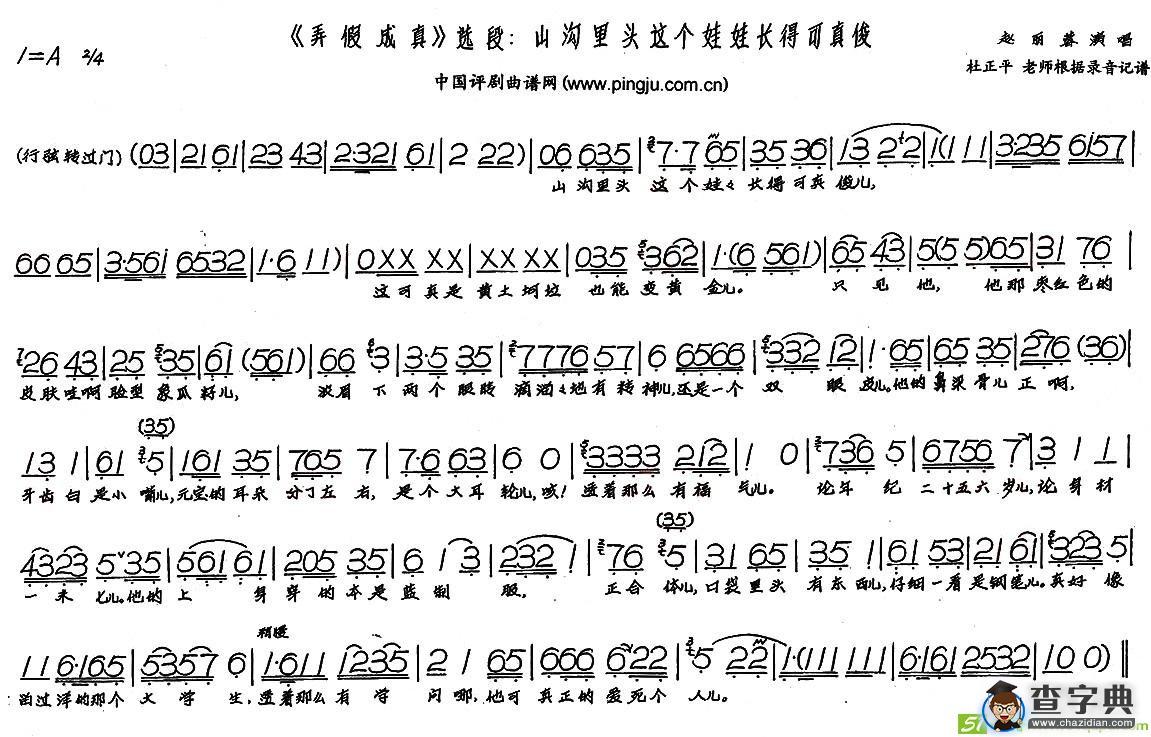 《弄假成真》选段:山沟里头这个娃娃长得可真俊
1=A 2/4
赵丽蓉演唱
中国评剧曲谱网(www.pingju.com.cn)
杜正平 老师根据录音记谱
(行弦转过门)(03|21 61|23 43|2·321 61|2 22)|06 635|7·7 65|35 36|13 2 2|1(1 11|3·235 6157|
山沟里头 这个娃〻 长得可真 俊儿,
66 65|3·561 6532|1·6 11)|0XX XX|XX XX|035 362|1·(6 561)|65 43|5(5 5)65|31 76|
这可真是 黄土坷垃 也能变黄金儿。 只见他, 他那枣红色的
26 43|25 35|61 (561)|66 3|3·5 35|7776 57|6 6566|332 12|1·65|65 35|276 (36)|
皮肤哇啊 脸型象瓜籽儿, 浓眉下两个眼睛 滴溜〻地有转神儿,还是一个双眼皮儿。他的鼻梁骨儿正啊,
(35)
13 1|61 5|161 35|765 7|7·6 63|6 0|3333 212|1 0|736 5|6756 7|3 1 1|
牙齿白是小嘴儿,元宝的耳朵 分了左右,是个大耳轮儿,咳!透着那么有福气儿。论年纪二十五六岁儿,论身材
(35)
4323 5 35|561 61|205 35|6 1 3|232 1|76 5|31 65|35 1|61 53|21 61|3235|
一米七儿。他的上身穿的本是蓝制服。正合体儿,口袋里头有东西儿,仔细一看是钢笔儿。真好像
稍慢
11 6·165|53576|1·611 1235|2 1 65|666 622|5 22|1·(111 111|6·161 2532|1 0 0)‖
泊过洋的那个大学生,透着那么有学问哪,他可真正的爱死个人儿。
查字典
www.chazidian.com